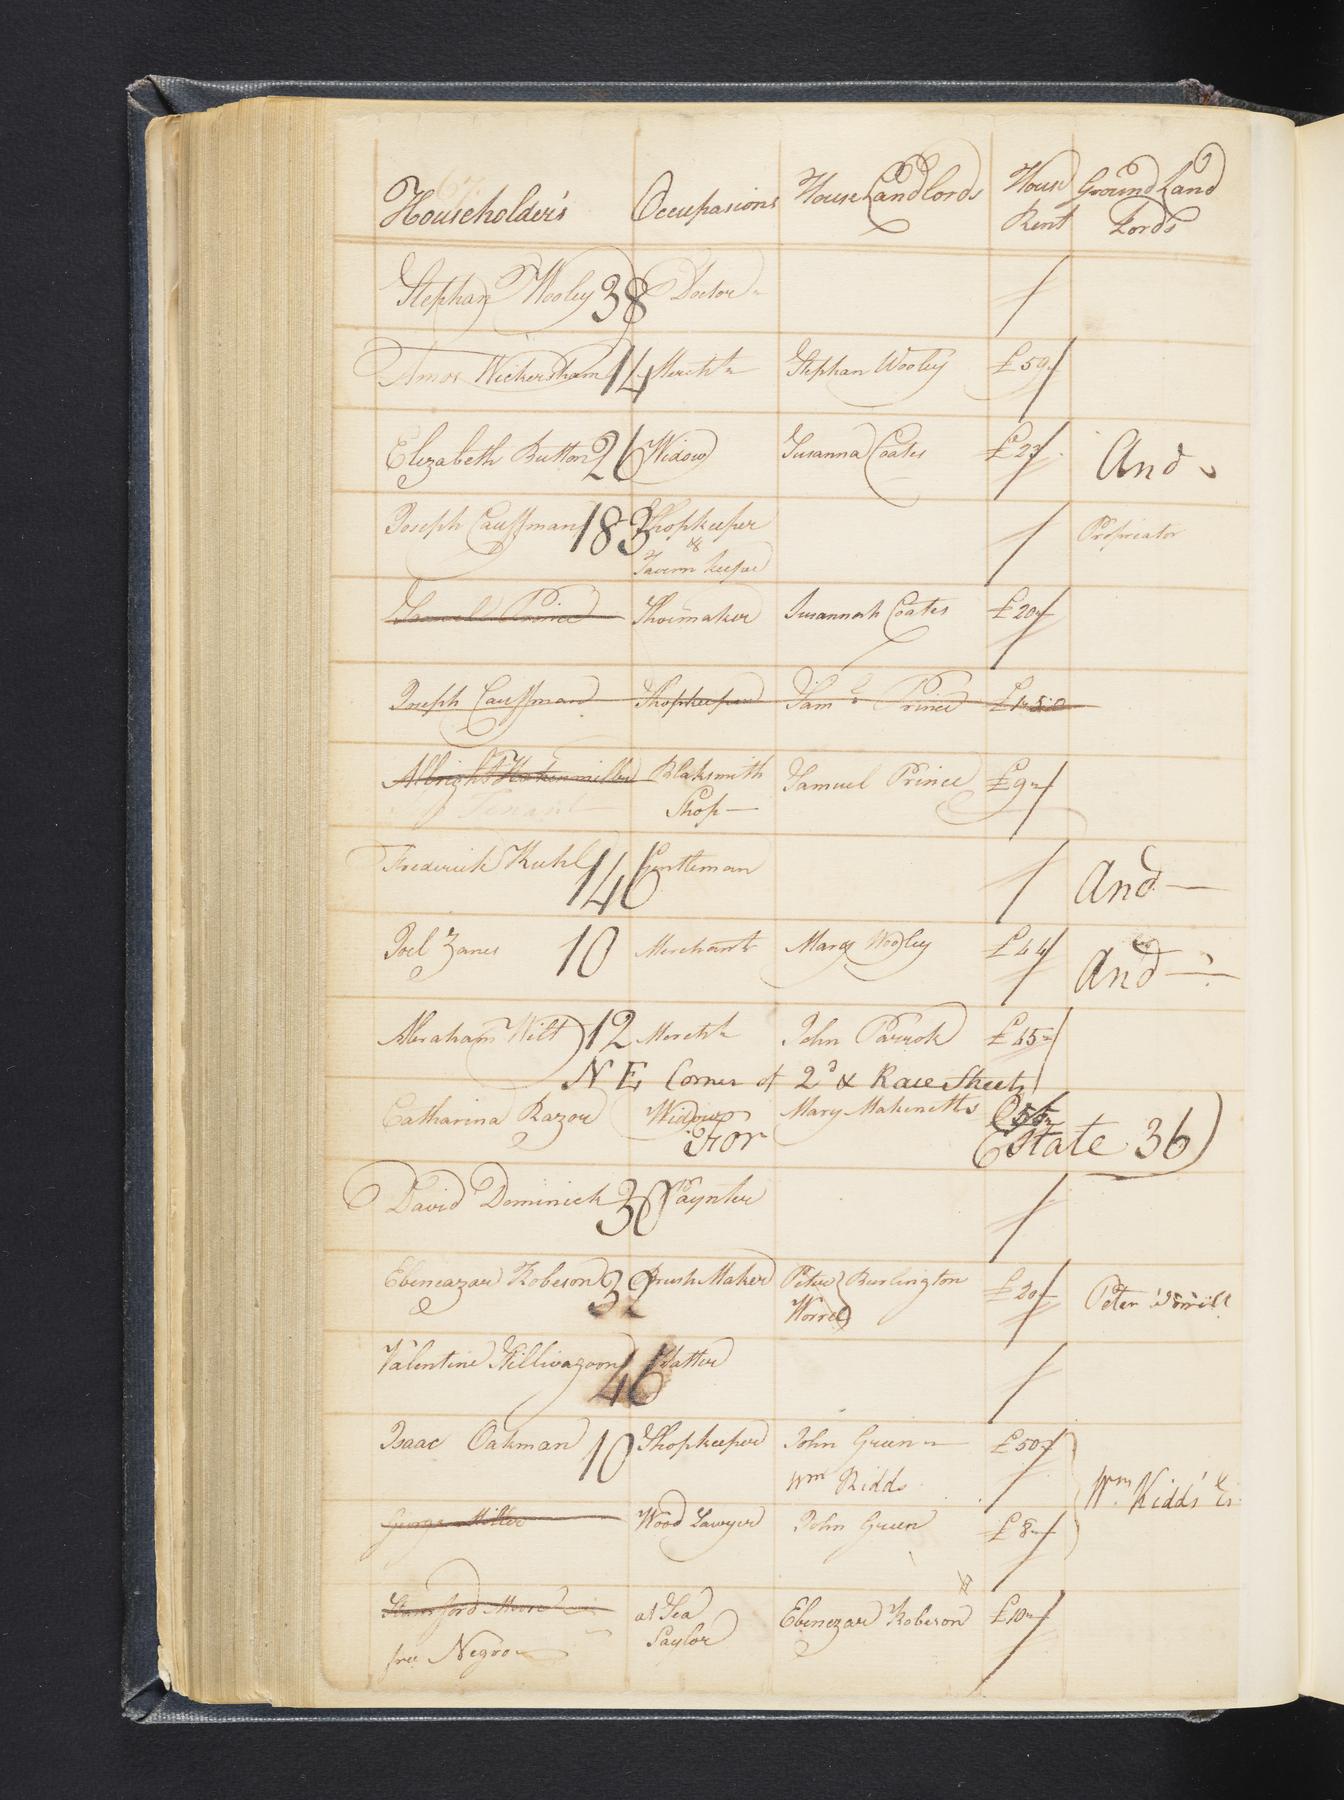 67.
Householder's Occupasions House Landlords House Rent Ground Land Lords
Stephan Wooley 38 Doctor
Amos Wickersham 14 Mercht Stephan Wooley £59
Elizabeth Button 26 Widow Susanna Coates £23 And
Joseph Cauffman 183 Shopkeeper Propriator
&
Tavern keeper
Samuel Prince Shoemaker Susannah Coates £20
Joseph Cauffman Shopkeeper Saml Prince
Albright Blaksmith Samuel Prince £9
Tenant Shop
Frederick Kuhl 146 Gentleman And
Joel Zanes 10 Merchant Mary Wooley £44 And
Abraham Wilt 12 Mercht John Parrok £45
N E Corner of 2d & Race Streets
Catharina Razor Widow Mary Makenetts
For Estate 36
David Dominick 30 Paynter
Ebeneazar Robeson 32 Brush Maker Peter Burlington £20 Peter
Worrel
Valentine Stillwagoon 46 Hatter
Isaac Oakman 10 Shopkeeper John Green £50
Wm Kidds Wm Kidds' Es
George Miller Wood Sawyer John Green £8
Stamford at Sea Ebenezar Robeson £10
free Negro Saylor